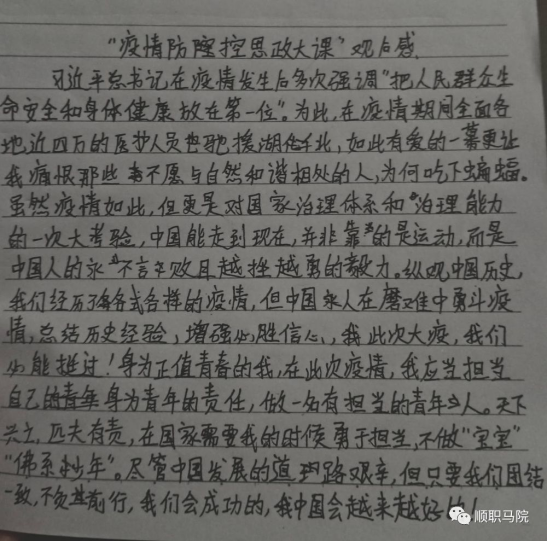 “疫情防控思政大课”观后感
习近平总书记在疫情发生后多次强调“把人民群众生
命安全和身体健康放在第一位”。为此,在疫情期间全面各
地近四万的医护人员驰援湖北,如此有爱的一幕更让
我痛恨那些不愿与自然和谐相处的人,为何吃下蝙蝠。
虽然疫情如此,但更是对国家治理体系和治理能力
的一次大考验,中国能走到现在,并非靠的是运动,而是
中国人的永不言败且越挫越勇的毅力。纵观中国历史,
我们经历了各式各样的疫情,但中国人在磨难中勇斗疫
情,总结历史经验,增强必胜信心,我此次大疫,我们
必能挺过!身为正值青春的我,在此次疫情,我应当担当
自己的身为青年的责任,做一名有担当的青年人。天下
兴亡,匹夫有责,在国家需要我的时候勇于担当,不做“宝宝”
“佛系少年”。尽管中国发展的道路艰辛,但只要我们团结
一致,不负其前行,我们会成功的,我中国会越来越好的!
顺职马院